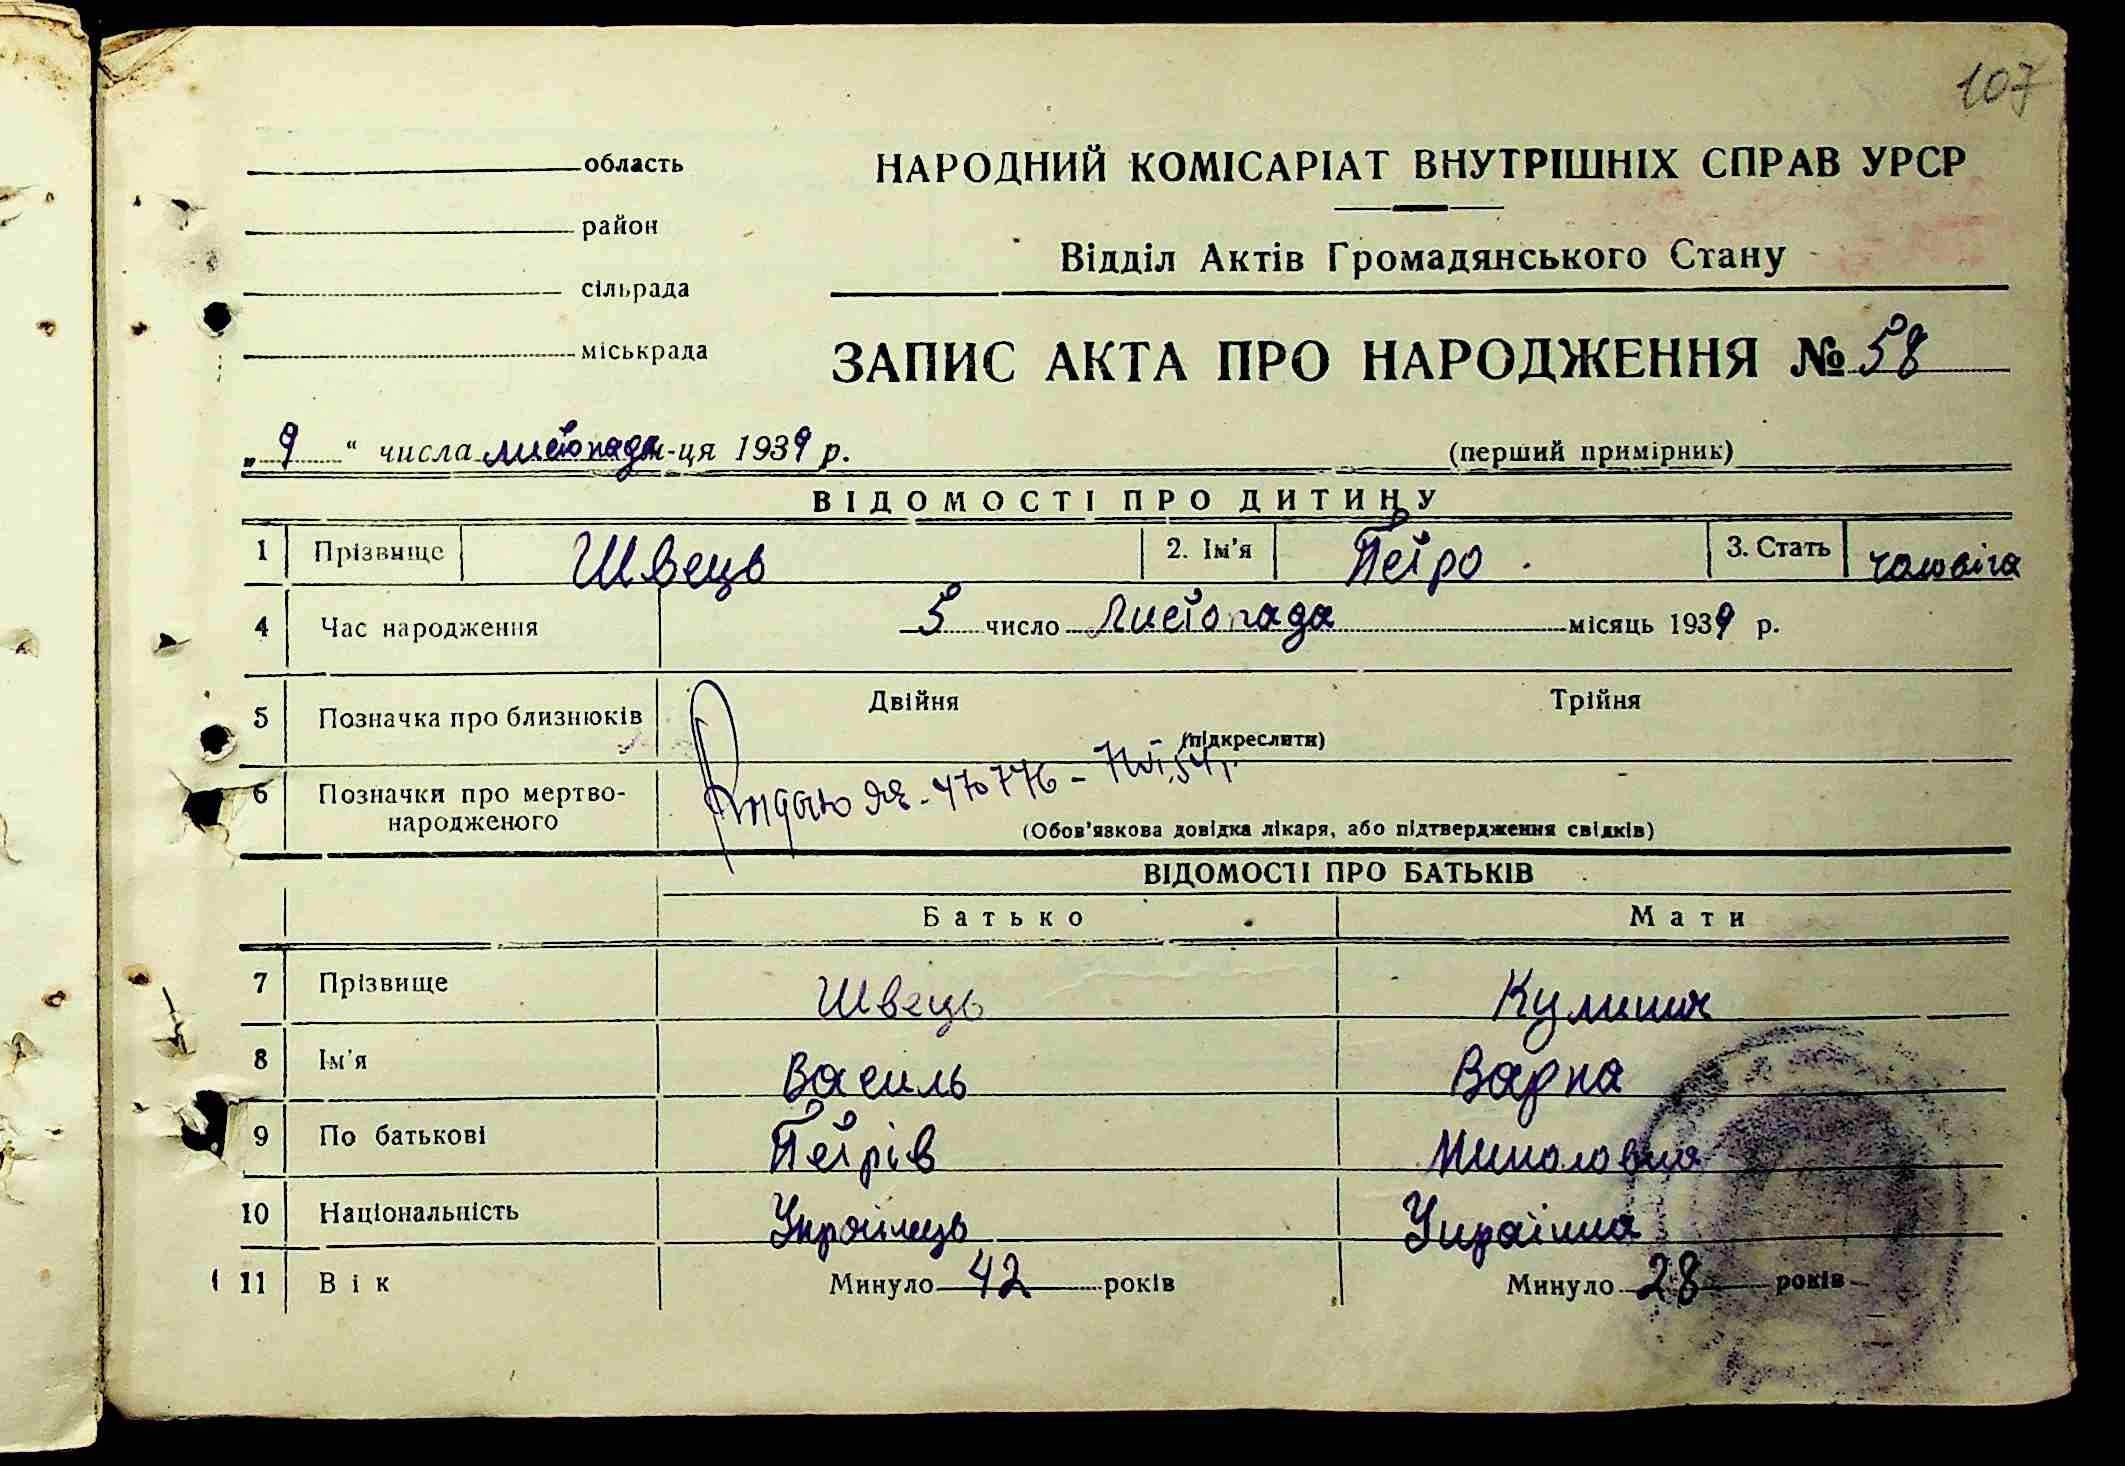 107
область
район
сільрада
міськрада
НАРОДНИЙ КОМІСАРІАТ ВНУТРІШНІХ СПРАВ УРСР
Відділ Актів Громадянського Стану
ЗАПИС АКТА ПРО НАРОДЖЕННЯ № 58
„ 9 “ числа листопада м-ця 1939 р. (перший примірник)
ВІДОМОСТІ ПРО ДИТИНУ
1 Прізвище Швець 2. Ім'я Петро 3. Стать
4 Час народження 5 число Листопада місяць 1939 р.
5 Позначка про близнюків Двійня Трійня
(підкреслити)
6 Позначки про мертво-
народженого
470776
(Обов'язкова довідка лікаря, або підтвердження свідків)
ВІДОМОСТІ ПРО БАТЬКІВ
Батько Мати
7 Прізвище Швець
8 Ім'я Василь Варка
9 По батькові Петрів
10 Національність Українець Українка
11 Вік Минуло 42 років Минуло 28 років